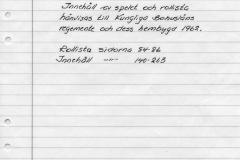 Innehåll av spelet och rollista
hänvisas till Kungliga Bohusläns
regemente och dess hembygd 1962.
Rollista sidorna 84-86
Innehåll -"- 140-263